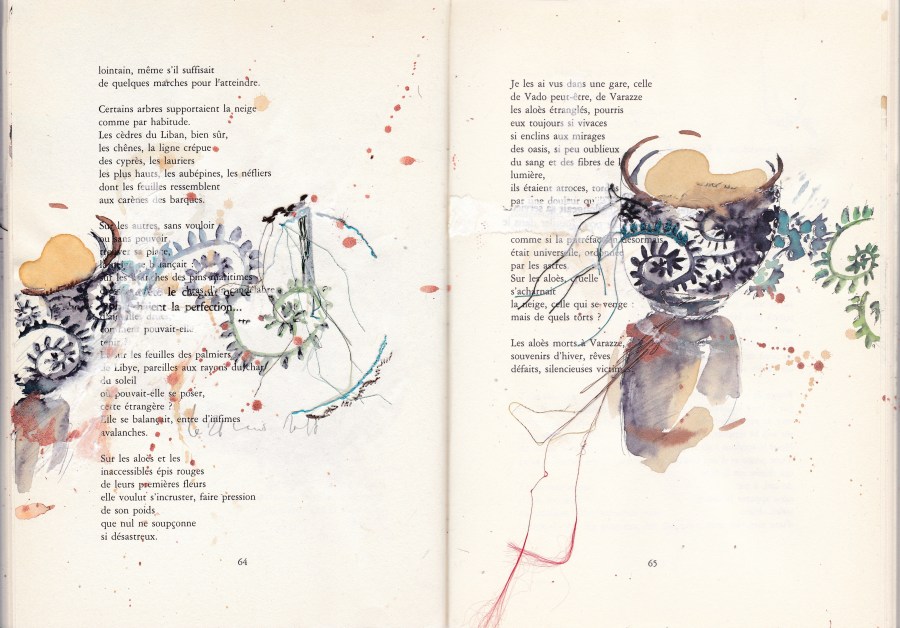 lointain, même s'il suffisait
de quelques marches pour l'atteindre.
Certains arbres supportaient la neige
comme par habitude.
Les cèdres du Liban, bien sûr,
les chênes, la ligne crépue
des cyprès, les lauriers
les plus hauts, les aubépines, les néfliers
dont les feuilles ressemblent
aux carènes des barques.
Sur les autres, sans vouloir
ou sans pouvoir
trouver sa place,
balançait :
les branches des pins maritimes
bras d'un candélabre
le chemin de
la perfection...
comment pouvait-elle
tenir ?
sur les feuilles des palmiers
de Libye, pareilles aux rayons du char
du soleil
où pouvait-elle se poser,
cette étrangère ?
Elle se balançait, entre d'infimes
avalanches.
Sur les aloès et les
inaccessibles épis rouges
de leurs premières fleurs
elle voulut s'incruster, faire pression
de son poids
que nul ne soupçonne
si désastreux.
64
Je les ai vus dans une gare, celle
de Vado peut-être, de Varazze
les aloès étranglés, pourris
eux toujours si vivaces
si enclins aux mirages
des oasis, si peu oublieux
du sang et des fibres de la
lumière,
ils étaient atroces, tordus
par une douleur qu
comme si la putréfaction désormais
était universelle, ordonnée
par les astres
Sur les aloès, cruelle
s'acharnait
la neige, celle qui se venge :
mais de quels torts ?
Les aloès morts à Varazze,
souvenirs d'hiver, rêves
défaits, silencieuses victimes
65